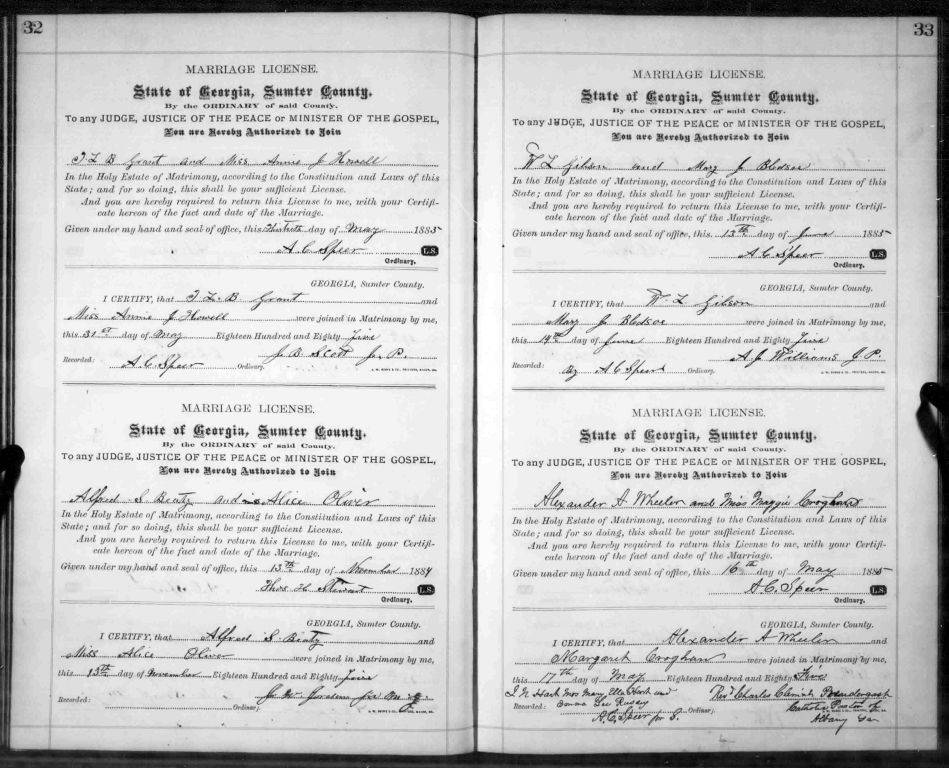 32
MARRIAGE LICENSE.
State of Georgia, Sumter County.
By the ORDINARY of said County.
To any JUDGE, JUSTICE OF THE PEACE or MINISTER OF THE GOSPEL,
You are Hereby Authorized to Join
T L B Grant and Miss Annie J Howell
In the Holy Estate of Matrimony, according to the Constitution and Laws of this
State; and for so doing, this shall be your sufficient License.
And you are hereby required to return this License to me, with your Certifi-
cate hereon of the fact and date of the Marriage.
Given under my hand and seal of office, this day of May 1885
A. C. Speer L.S.
Ordinary.
GEORGIA, Sumter County.
I CERTIFY, that T. L. B. Grant and
Miss Annie J Howell were joined in Matrimony by me,
this 31st day of May Eighteen Hundred and Eighty five
J. B. Scott J. P.
Recorded: A. C. Speer Ordinary.
MARRIAGE LICENSE.
State of Georgia, Sumter County.
By the ORDINARY of said County.
To any JUDGE, JUSTICE OF THE PEACE or MINISTER OF THE GOSPEL,
You are Hereby Authorized to Join
Alfred S. Beaty and Miss Alice Oliver
In the Holy Estate of Matrimony, according to the Constitution and Laws of this
State; and for so doing, this shall be your sufficient License.
And you are hereby required to return this License to me, with your Certifi-
cate hereon of the fact and date of the Marriage.
Given under my hand and seal of office, this 13th day of November 1884
Thos. H. Stewart L.S.
Ordinary.
GEORGIA, Sumter County.
I CERTIFY, that Alfred S. Beaty and
Miss Alice Oliver were joined in Matrimony by me,
this 13th day of November Eighteen Hundred and Eighty five
Recorded: Ordinary.
33
MARRIAGE LICENSE.
State of Georgia, Sumter County.
By the ORDINARY of said County.
To any JUDGE, JUSTICE OF THE PEACE or MINISTER OF THE GOSPEL,
You are Hereby Authorized to Join
W L Gibson and Mary J Bledsoe
In the Holy Estate of Matrimony, according to the Constitution and Laws of this
State; and for so doing, this shall be your sufficient License.
And you are hereby required to return this License to me, with your Certifi-
cate hereon of the fact and date of the Marriage.
Given under my hand and seal of office, this 13th day of June 1885
A C Speer L.S.
Ordinary.
GEORGIA, Sumter County.
I CERTIFY, that W. L Gibson and
Mary J Bledsoe were joined in Matrimony by me,
this 14th day of June Eighteen Hundred and Eighty five
A. J Williams J. P.
Recorded: By A C Speer Ordinary.
MARRIAGE LICENSE.
State of Georgia, Sumter County.
By the ORDINARY of said County.
To any JUDGE, JUSTICE OF THE PEACE or MINISTER OF THE GOSPEL,
You are Hereby Authorized to Join
Alexander A. Wheeler and Miss Maggie Croghan
In the Holy Estate of Matrimony, according to the Constitution and Laws of this
State; and for so doing, this shall be your sufficient License.
And you are hereby required to return this License to me, with your Certifi-
cate hereon of the fact and date of the Marriage.
Given under my hand and seal of office, this 16th day of May 1885
A. C. Speer L.S.
Ordinary.
GEORGIA, Sumter County.
I CERTIFY, that Alexander A Wheeler and
Margaret Croghan were joined in Matrimony by me,
this 17th day of May Eighteen Hundred and Eighty Five
Hart Mrs Mary Ella Hart and Revd Charles Clement Prendergast
Recorded: Emma Lee Ordinary. Catholic Pastor
A. C. Speer Albany Ga